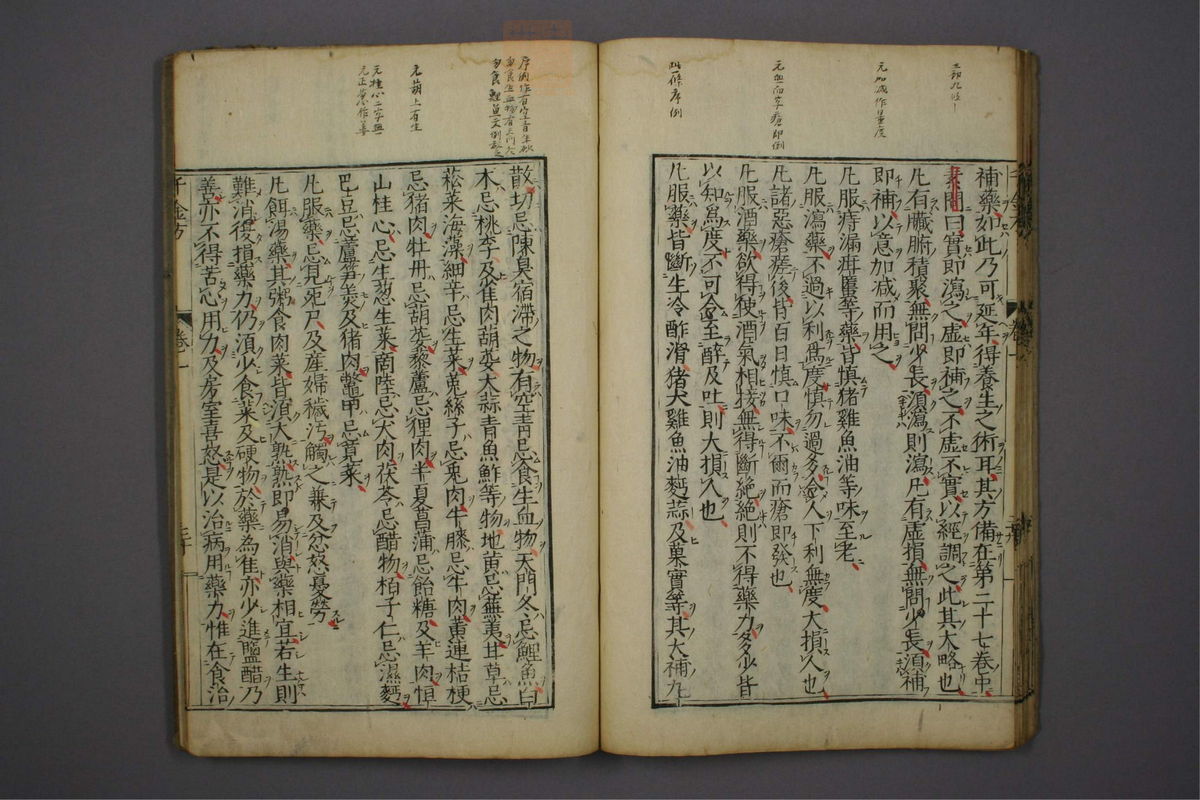 補藥如此乃可延年得養生之術耳其方備在第二十七卷中
素問曰實即瀉之虛即補之不虛不實以經調之此其大略也
凡有臟腑積聚無問少長須瀉則瀉凡有虛損無問少長須補
即補以意加减而用之
凡服痔漏疳䘌等藥皆慎猪雞魚油等味至老
凡服瀉藥不過以利爲度慎勿過多令人下利無度大損人也
凡諸惡瘡瘥後皆百日慎口味不爾而瘡即發也
凡服酒藥欲得使酒氣相接無得斷絶絶則不得藥力多少皆
以知爲度不可令至醉及吐則大損人也
凡服藥皆斷生冷酢滑猪犬雞魚油麪蒜及菓實等其大補丸
散切忌陳臭宿滯之物有空青忌食生血物天門冬忌鯉魚白
木忌桃李及雀肉葫荽大蒜青魚鮓等物地黄忌蕪荑甘草忌
菘菜海藻細辛忌生菜兎絲子忌兎肉牛膝忌牛肉黄連桔梗
忌猪肉牡丹忌葫荽藜蘆忌狸肉半夏菖蒲忌飴糖及羊肉恒
山桂心忌生葱生菜商陸忌犬肉茯苓忌醋物栢子仁忌濕麪
巴豆忌蘆笋羮及猪肉鼈甲忌莧菜
凡服藥忌見死尸及産婦穢污觸之兼及忿怒憂勞
凡餌湯藥其粥食肉菜皆須大熟熟即易消與藥相宜若生則
難消復損藥力仍須少食菜及硬物於藥為佳亦少進鹽醋乃
善亦不得苦心用力及房室喜怒是以治病用藥力惟在食治
千金方
卷一
元加减作量度
元而字瘡即倒
此條序例
元葫上有生
元桂心二字無